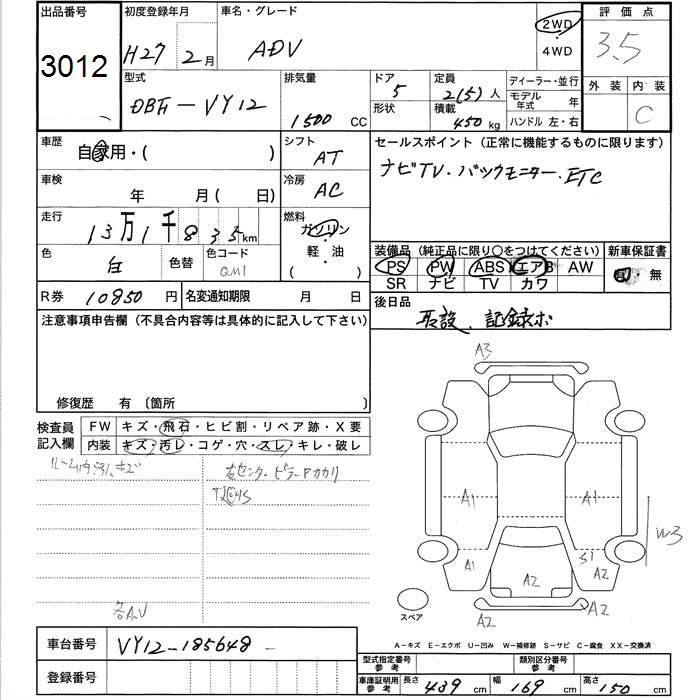 出品番号 初度登録年月 車名・グレード 2WD 評価点
3012 H27 2月 ADV 4WD 3.5
型式 排気量 ドア 定員 ディーラー・並行 外装 内装
DBF-VY12 1500 CC 5 2(5)人 モデル年式 年
形状 積載 450 kg ハンドル 左・右 C
車歴 自家用・( ) シフト AT セールスポイント(正常に機能するものに限ります)
車検 年 月( 日) 冷房 AC ナビTV・バックモニター・ETC
走行 13万1千835km 燃料 ガソリン
軽・油
( )
色 白 色替 色コード QM1
装備品(純正品に限り○をつけてください) 新車保証書
PS PW ABS エアB AW 有・無
SR ナビ TV カワ
R券 10850 円 名変通知期限 月 日 後日品
取説、記録ボ
注意事項申告欄(不具合内容等は具体的に記入して下さい)
修復歴 有(箇所 )
検査員記入欄 FW キズ・飛石・ヒビ割・リペア跡・X要
内装 キズ・汚レ・コゲ・穴・スレ・キレ・破レ
右センターピラー
各A.U
A3
A1 A1
W3
A1 S1 A2
A2
A2 A2
スペア
車台番号 VY12-185648
登録番号
A-キズ E-エクボ U-凹み W-補修跡 S-サビ C-腐食 XX-交換済
型式指定番号参考 類別区分番号参考
車庫証明用参考 長さ 439 cm 幅 169 cm 高さ 150 cm